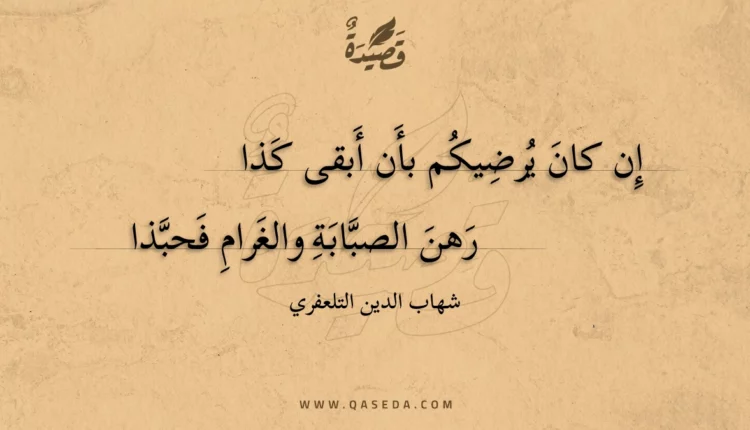 قَصِيدَةٌ
إِن كانَ يُرضِيكُم بأَن أَبقى كَذا
رَهنَ الصبَّابَةِ والغَرامِ فَحبَّذا
شهاب الدين التلعفري
WWW.QASEDA.COM